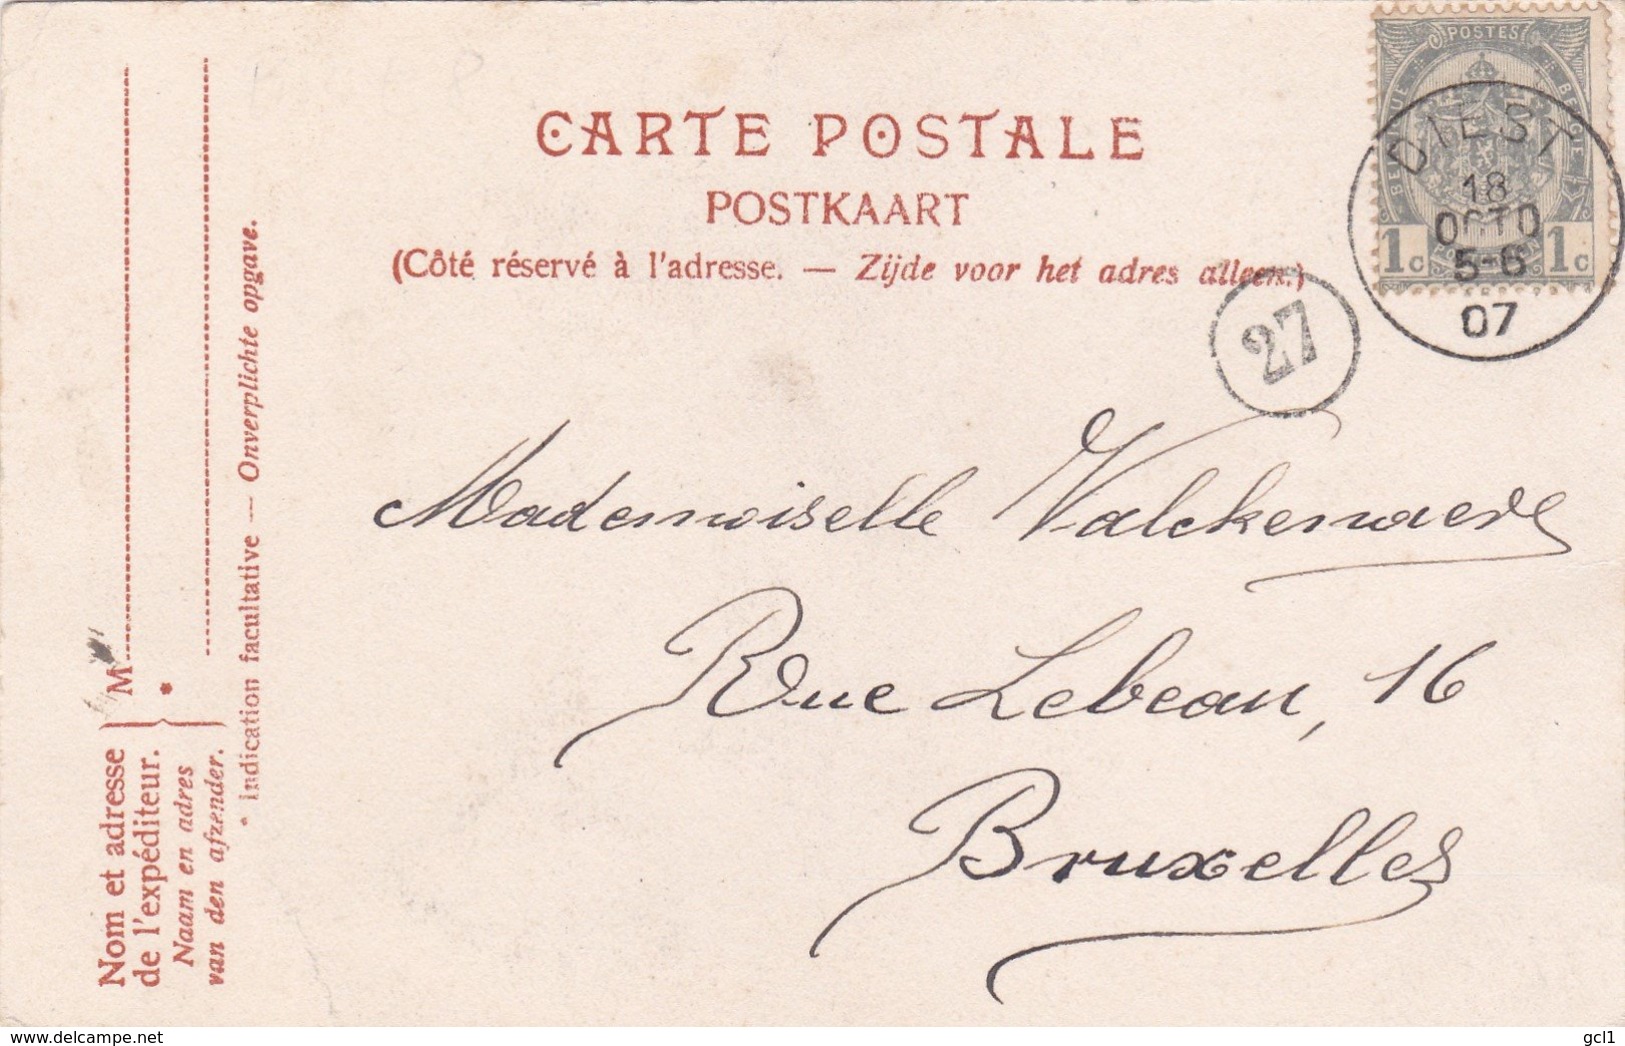 CARTE POSTALE
POSTKAART
(Côté réservé à l'adresse. — Zijde voor het adres alleen.)
POSTES
BELGIQUE BELGIE
1c 1c
DIEST
18
OCTO
5-6
07
27
Mademoiselle Valckenaere
Rue Lebeau, 16
Bruxelles
Nom et adresse
de l'expéditeur.
Naam en adres
van den afzender.
M
* Indication facultative — Onverplichte opgave.
delcampe.net
gcl1